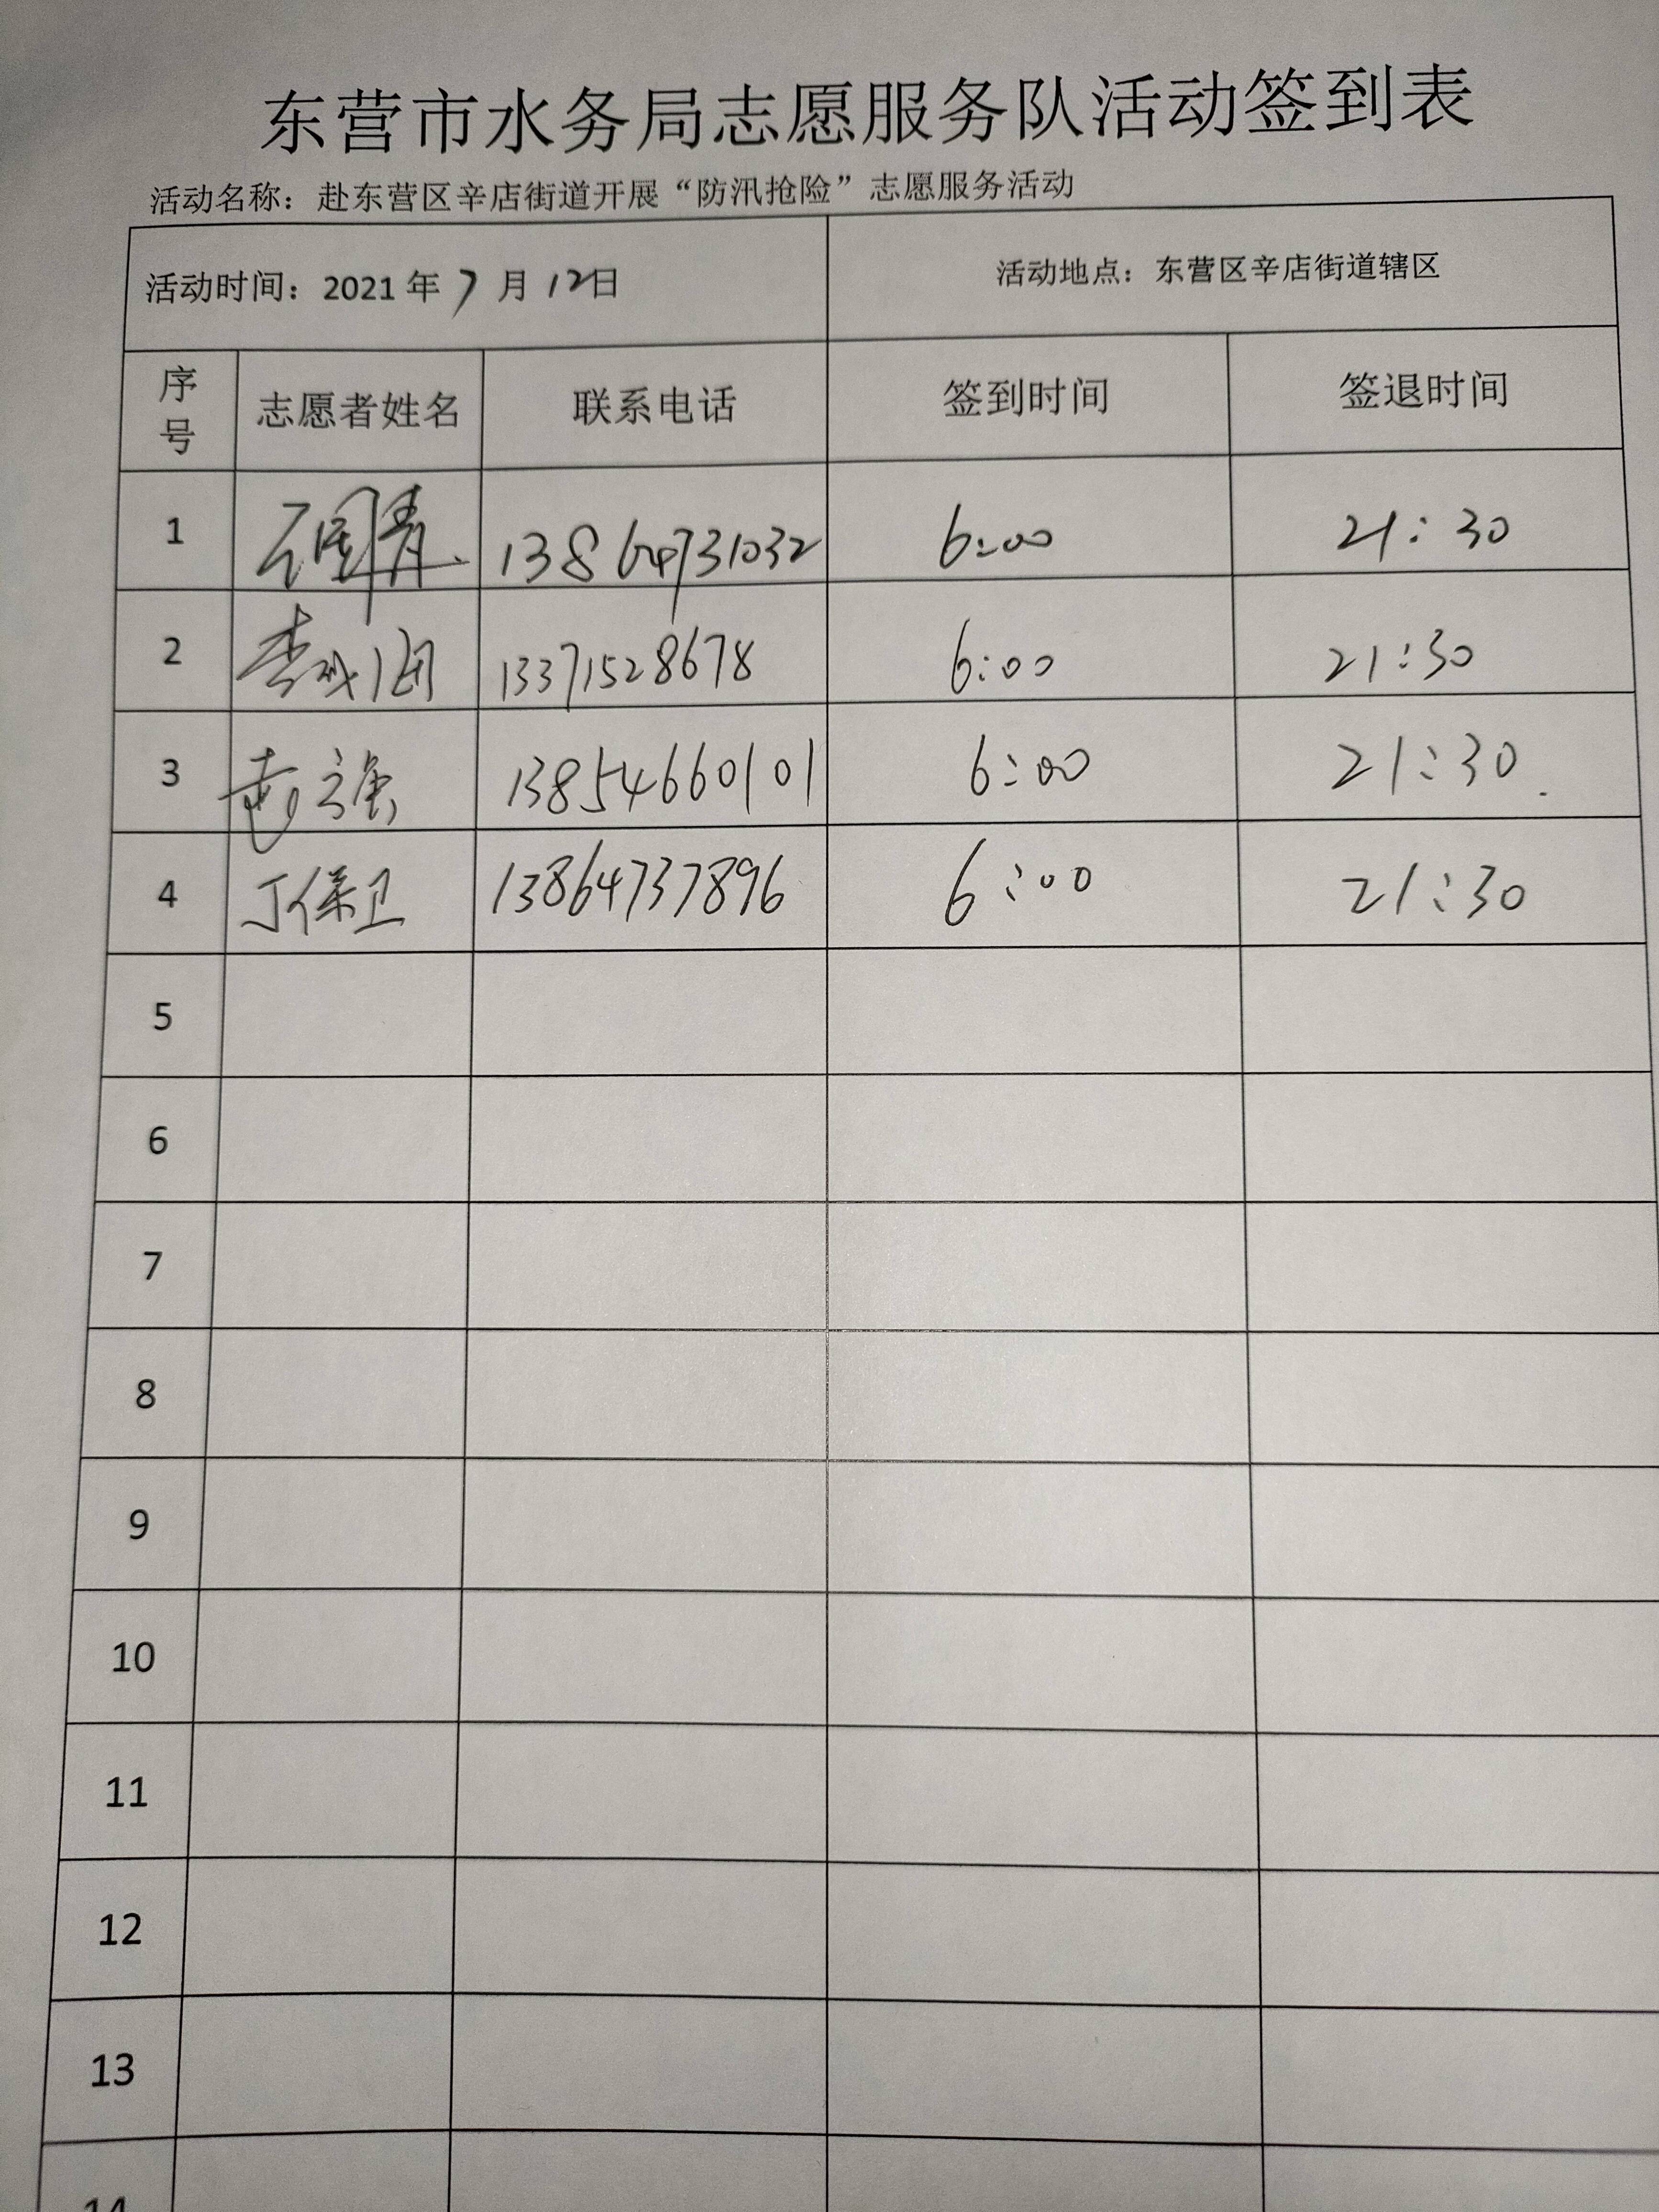 东营市水务局志愿服务队活动签到表
活动名称：赴东营区辛店街道开展“防汛抢险”志愿服务活动
活动时间：2021年7月12日 活动地点：东营区辛店街道辖区
序号 志愿者姓名 联系电话 签到时间 签退时间
1 13864731032 6:00 21:30
2 13371528678 6:00 21:30
3 13854660101 6:00 21:30
4 丁保卫 13864737896 6:00 21:30
5
6
7
8
9
10
11
12
13
14